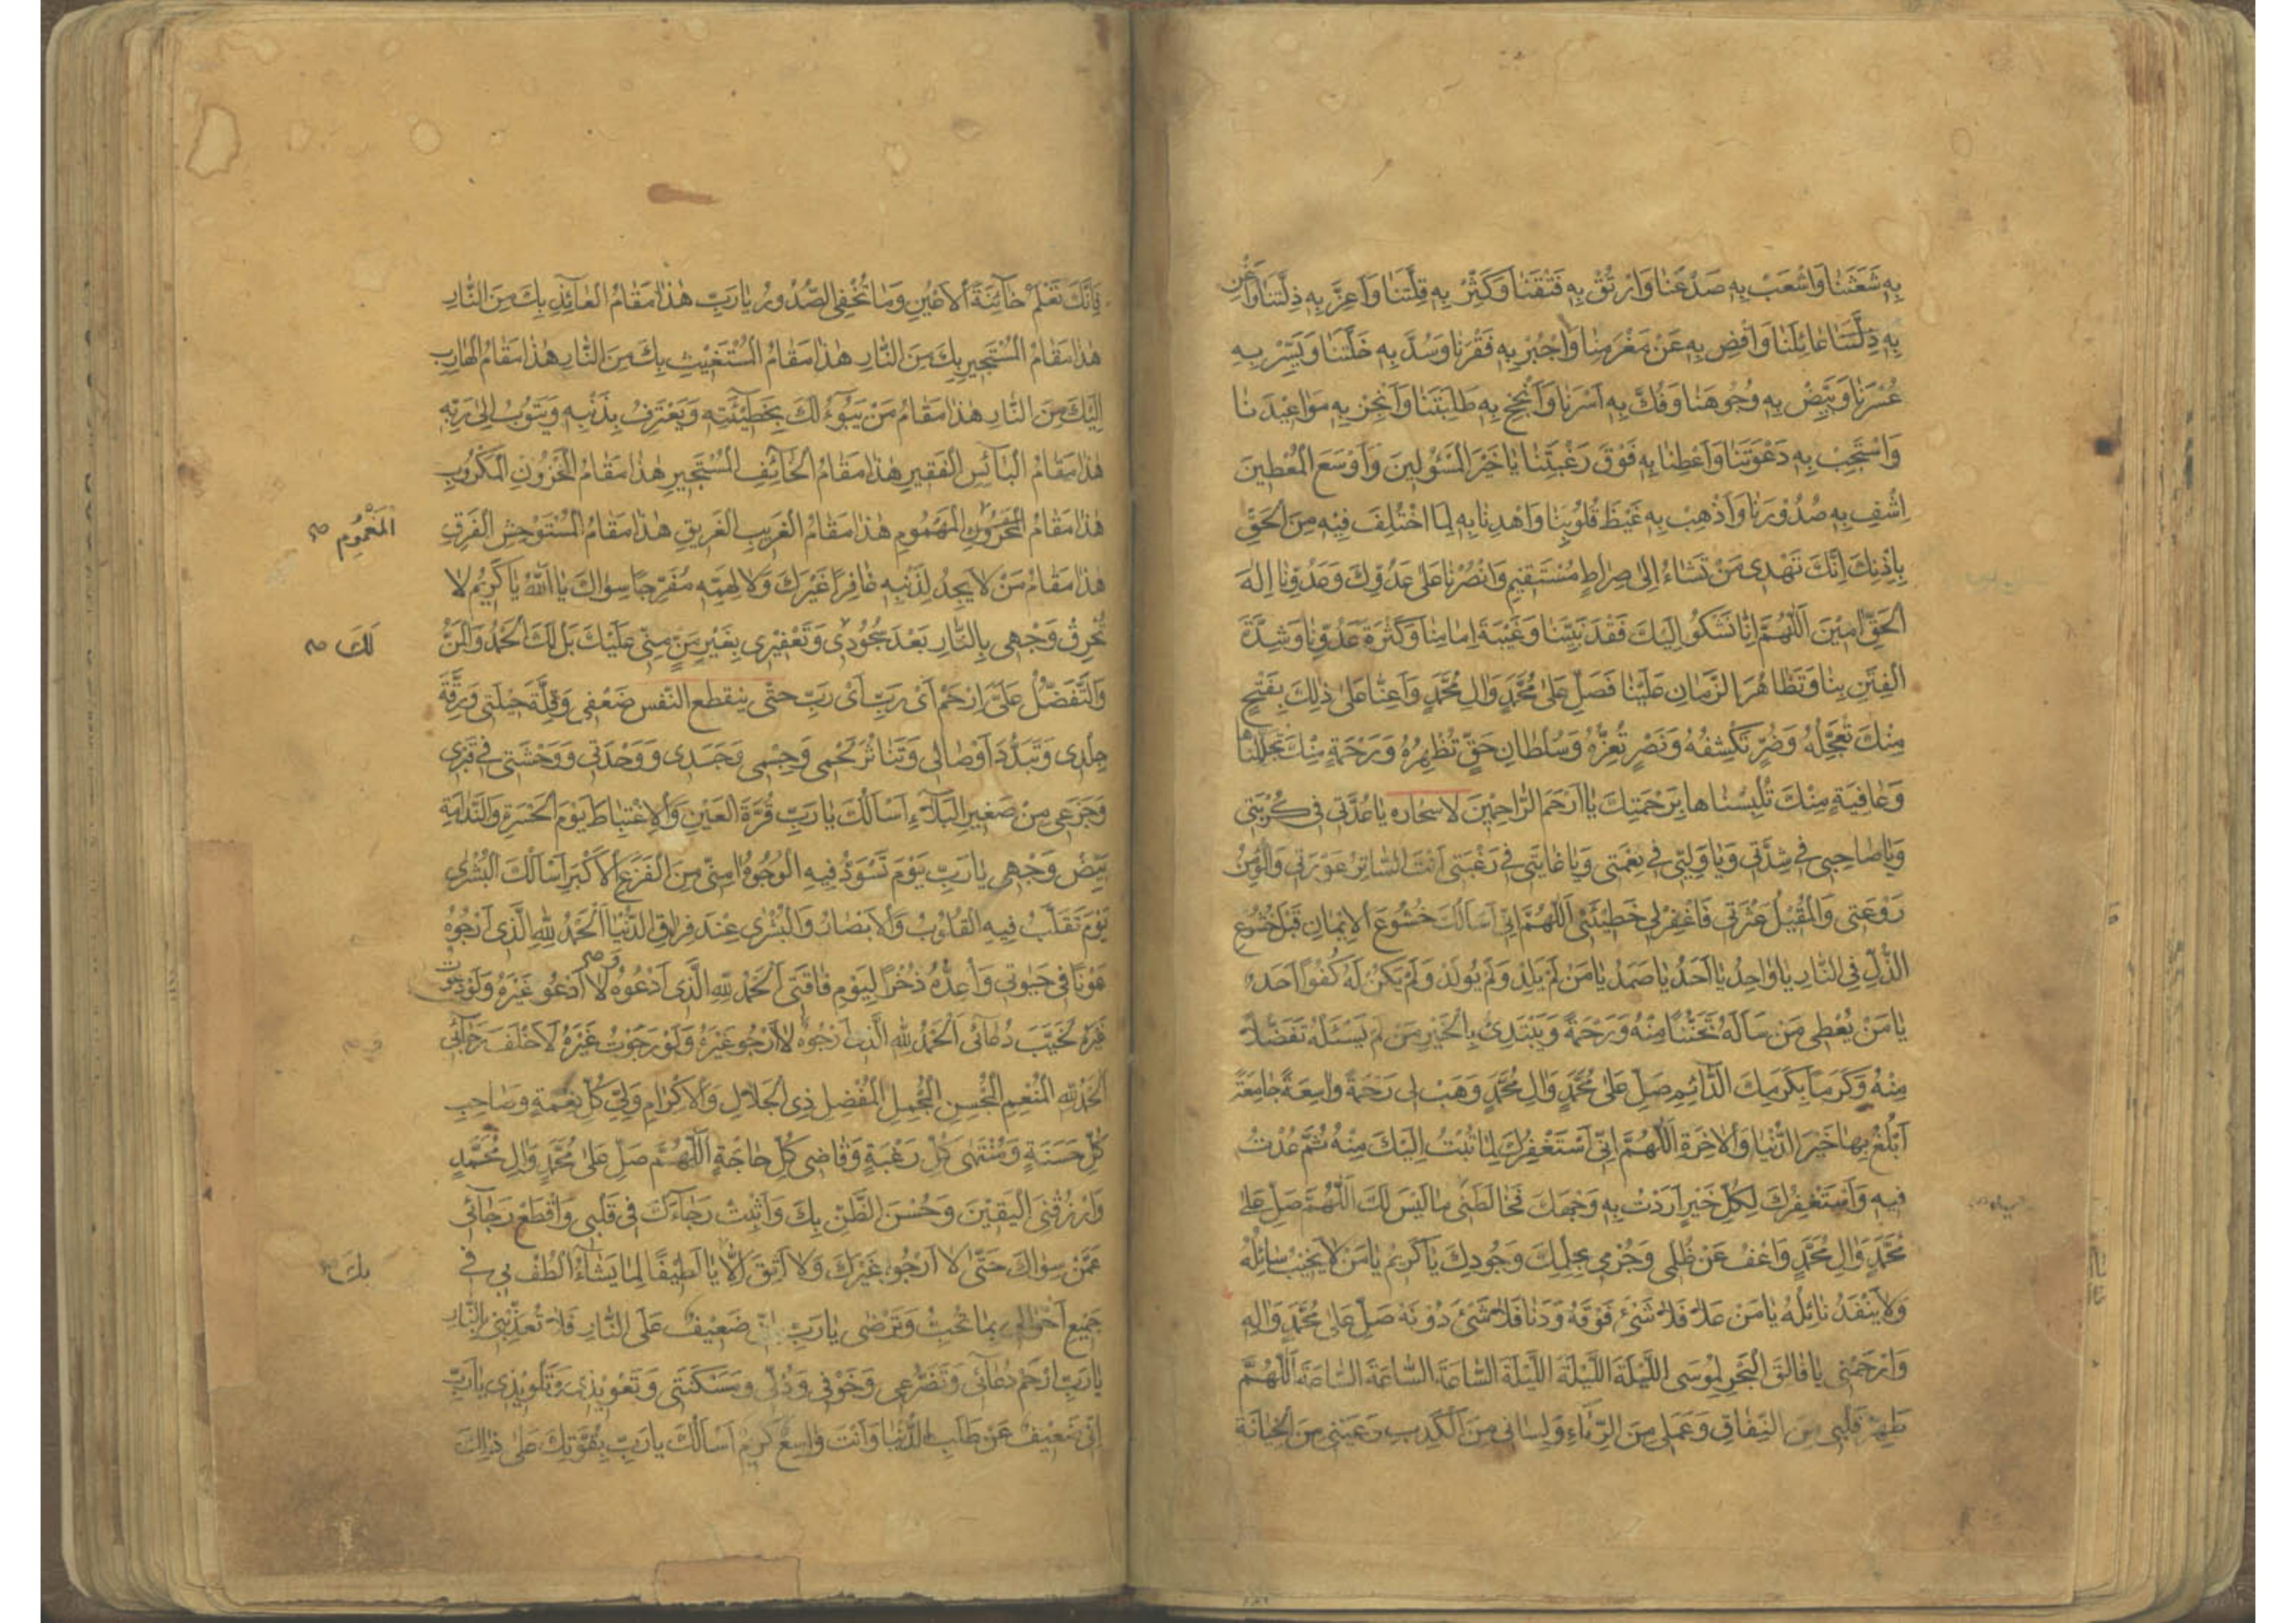 بِهِ شَعَثَنَا وَاشْعَبْ بِهِ صَدْعَنَا وَارْتُقْ بِهِ فَتْقَنَا وَكَثِّرْ بِهِ قِلَّتَنَا وَاَعِزَّ بِهِ ذِلَّتَنَا وَاَغْنِ
بِهِ عَائِلَنَا وَاقْضِ بِهِ عَنْ مَغْرَمِنَا وَاجْبُرْ بِهِ فَقْرَنَا وَسُدَّ بِهِ خَلَّتَنَا وَيَسِّرْ بِهِ
عُسْرَنَا وَبَيِّضْ بِهِ وُجُوهَنَا وَفُكَّ بِهِ اَسْرَنَا وَاَنْجِحْ بِهِ طَلِبَتَنَا وَاَنْجِزْ بِهِ مَوَاعِيدَنَا
وَاسْتَجِبْ بِهِ دَعْوَتَنَا وَاَعْطِنَا بِهِ فَوْقَ رَغْبَتِنَا يَا خَيْرَ الْمَسْئُولِينَ وَاَوْسَعَ الْمُعْطِينَ
اِشْفِ بِهِ صُدُورَنَا وَاَذْهِبْ بِهِ غَيْظَ قُلُوبِنَا وَاهْدِنَا بِهِ لِمَا اخْتُلِفَ فِيهِ مِنَ الْحَقِّ
بِاِذْنِكَ اِنَّكَ تَهْدِي مَنْ تَشَاءُ اِلٰى صِرَاطٍ مُسْتَقِيمٍ وَانْصُرْنَا عَلٰى عَدُوِّكَ وَعَدُوِّنَا اِلٰهَ
الْحَقِّ اٰمِينَ اَللّٰهُمَّ اِنَّا نَشْكُو اِلَيْكَ فَقْدَ نَبِيِّنَا وَغَيْبَةَ اِمَامِنَا وَكَثْرَةَ عَدُوِّنَا وَشِدَّةَ
الْفِتَنِ بِنَا وَتَظَاهُرَ الزَّمَانِ عَلَيْنَا فَصَلِّ عَلٰى مُحَمَّدٍ وَاٰلِ مُحَمَّدٍ وَاَعِنَّا عَلٰى ذٰلِكَ بِفَتْحٍ
مِنْكَ تُعَجِّلُهُ وَضُرٍّ تَكْشِفُهُ وَنَصْرٍ تُعِزُّهُ وَسُلْطَانِ حَقٍّ تُظْهِرُهُ وَرَحْمَةٍ مِنْكَ تُجَلِّلُنَاهَا
وَعَافِيَةٍ مِنْكَ تُلْبِسُنَاهَا بِرَحْمَتِكَ يَا اَرْحَمَ الرَّاحِمِينَ لاسحاره يَا عُدَّتِي فِي كُرْبَتِي
وَيَا صَاحِبِي فِي شِدَّتِي وَيَا وَلِيِّي فِي نِعْمَتِي وَيَا غَايَتِي فِي رَغْبَتِي اَنْتَ السَّاتِرُ عَوْرَتِي وَالْمُؤْمِنُ
رَوْعَتِي وَالْمُقِيلُ عَثْرَتِي فَاغْفِرْ لِي خَطِيئَتِي اَللّٰهُمَّ اِنِّي اَسْاَلُكَ خُشُوعَ الْاِيمَانِ قَبْلَ خُشُوعِ
الذُّلِّ فِي النَّارِ يَا وَاحِدُ يَا اَحَدُ يَا صَمَدُ يَا مَنْ لَمْ يَلِدْ وَلَمْ يُولَدْ وَلَمْ يَكُنْ لَهُ كُفُوًا اَحَدٌ
يَا مَنْ يُعْطِي مَنْ سَاَلَهُ تَحَنُّنًا مِنْهُ وَرَحْمَةً وَيَبْتَدِئُ بِالْخَيْرِ مَنْ لَمْ يَسْئَلْهُ تَفَضُّلًا
مِنْهُ وَكَرَمًا بِكَرَمِكَ الدَّائِمِ صَلِّ عَلٰى مُحَمَّدٍ وَاٰلِ مُحَمَّدٍ وَهَبْ لِي رَحْمَةً وَاسِعَةً جَامِعَةً
اَبْلُغُ بِهَا خَيْرَ الدُّنْيَا وَالْاٰخِرَةِ اَللّٰهُمَّ اِنِّي اَسْتَغْفِرُكَ لِمَا تُبْتُ اِلَيْكَ مِنْهُ ثُمَّ عُدْتُ
فِيهِ وَاَسْتَغْفِرُكَ لِكُلِّ خَيْرٍ اَرَدْتُ بِهِ وَجْهَكَ فَخَالَطَنِي مَا لَيْسَ لَكَ اَللّٰهُمَّ صَلِّ عَلٰى
مُحَمَّدٍ وَاٰلِ مُحَمَّدٍ وَاعْفُ عَنْ ظُلْمِي وَجُرْمِي بِحِلْمِكَ وَجُودِكَ يَا كَرِيمُ يَا مَنْ لَا يَخِيبُ سَائِلُهُ
وَلَا يَنْفَدُ نَائِلُهُ يَا مَنْ عَلَا فَلَا شَيْءَ فَوْقَهُ وَدَنَا فَلَا شَيْءَ دُونَهُ صَلِّ عَلٰى مُحَمَّدٍ وَاٰلِهِ
وَارْحَمْنِي يَا فَالِقَ الْبَحْرِ لِمُوسَى اللَّيْلَةَ اللَّيْلَةَ اللَّيْلَةَ السَّاعَةَ السَّاعَةَ السَّاعَةَ اَللّٰهُمَّ
طَهِّرْ قَلْبِي مِنَ النِّفَاقِ وَعَمَلِي مِنَ الرِّيَاءِ وَلِسَانِي مِنَ الْكَذِبِ وَعَيْنِي مِنَ الْخِيَانَةِ
فَاِنَّكَ تَعْلَمُ خَائِنَةَ الْاَعْيُنِ وَمَا تُخْفِي الصُّدُورُ يَا رَبِّ هٰذَا مَقَامُ الْعَائِذِ بِكَ مِنَ النَّارِ
هٰذَا مَقَامُ الْمُسْتَجِيرِ بِكَ مِنَ النَّارِ هٰذَا مَقَامُ الْمُسْتَغِيثِ بِكَ مِنَ النَّارِ هٰذَا مَقَامُ الْهَارِبِ
اِلَيْكَ مِنَ النَّارِ هٰذَا مَقَامُ مَنْ يَبُوءُ لَكَ بِخَطِيئَتِهِ وَيَعْتَرِفُ بِذَنْبِهِ وَيَتُوبُ اِلٰى رَبِّهِ
هٰذَا مَقَامُ الْبَائِسِ الْفَقِيرِ هٰذَا مَقَامُ الْخَائِفِ الْمُسْتَجِيرِ هٰذَا مَقَامُ الْمَحْزُونِ الْمَكْرُوبِ
هٰذَا مَقَامُ الْمَحْزُونِ الْمَهْمُومِ هٰذَا مَقَامُ الْغَرِيبِ الْغَرِيقِ هٰذَا مَقَامُ الْمُسْتَوْحِشِ الْفَرِقِ
الْمَغْمُومِ صح
هٰذَا مَقَامُ مَنْ لَا يَجِدُ لِذَنْبِهِ غَافِرًا غَيْرَكَ وَلَا لِهَمِّهِ مُفَرِّجًا سِوَاكَ يَا اَللّٰهُ يَا كَرِيمُ لَا
تُحْرِقْ وَجْهِي بِالنَّارِ بَعْدَ سُجُودِي وَتَعْفِيرِي بِغَيْرِ مَنٍّ مِنِّي عَلَيْكَ بَلْ لَكَ الْحَمْدُ وَالْمَنُّ
لَكَ صح
وَالتَّفَضُّلُ عَلَيَّ اِرْحَمْ اَيْ رَبِّ اَيْ رَبِّ حتى ينقطع النفس ضَعْفِي وَقِلَّةَ حِيلَتِي وَرِقَّةَ
جِلْدِي وَتَبَدُّدَ اَوْصَالِي وَتَنَاثُرَ لَحْمِي وَجِسْمِي وَجَسَدِي وَوَحْدَتِي وَوَحْشَتِي فِي قَبْرِي
وَجَزَعِي مِنْ صَغِيرِ الْبَلَاءِ اَسْاَلُكَ يَا رَبِّ قُرَّةَ الْعَيْنِ وَالْاِغْتِبَاطَ يَوْمَ الْحَسْرَةِ وَالنَّدَامَةِ
بَيِّضْ وَجْهِي يَا رَبِّ يَوْمَ تَسْوَدُّ فِيهِ الْوُجُوهُ اٰمِنِّي مِنَ الْفَزَعِ الْاَكْبَرِ اَسْاَلُكَ الْبُشْرٰى
يَوْمَ تَقَلَّبُ فِيهِ الْقُلُوبُ وَالْاَبْصَارُ وَالْبُشْرٰى عِنْدَ فِرَاقِ الدُّنْيَا اَلْحَمْدُ لِلّٰهِ الَّذِي اَرْجُوهُ
عَوْنًا فِي حَيٰوتِي وَاُعِدُّهُ ذُخْرًا لِيَوْمِ فَاقَتِي اَلْحَمْدُ لِلّٰهِ الَّذِي اَدْعُوهُ لَا اَدْعُو غَيْرَهُ وَلَوْ دَعَوْتُ
غَيْرَهُ لَخَيَّبَ دُعَائِي اَلْحَمْدُ لِلّٰهِ الَّذِي اَرْجُوهُ لَا اَرْجُو غَيْرَهُ وَلَوْ رَجَوْتُ غَيْرَهُ لَاَخْلَفَ رَجَائِي
اَلْحَمْدُ لِلّٰهِ الْمُنْعِمِ الْمُحْسِنِ الْمُجْمِلِ الْمُفْضِلِ ذِي الْجَلَالِ وَالْاِكْرَامِ وَلِيِّ كُلِّ نِعْمَةٍ وَصَاحِبِ
كُلِّ حَسَنَةٍ وَمُنْتَهٰى كُلِّ رَغْبَةٍ وَقَاضِي كُلِّ حَاجَةٍ اَللّٰهُمَّ صَلِّ عَلٰى مُحَمَّدٍ وَاٰلِ مُحَمَّدٍ
وَارْزُقْنِي الْيَقِينَ وَحُسْنَ الظَّنِّ بِكَ وَاَثْبِتْ رَجَاءَكَ فِي قَلْبِي وَاقْطَعْ رَجَائِي
عَمَّنْ سِوَاكَ حَتّٰى لَا اَرْجُوَ غَيْرَكَ وَلَا اَثِقَ اِلَّا يَا لَطِيفًا لِمَا يَشَاءُ اُلْطُفْ بِي فِي
بِكَ صح
جَمِيعِ اَحْوَالِي بِمَا تُحِبُّ وَتَرْضٰى يَا رَبِّ اِنِّي ضَعِيفٌ عَلَى النَّارِ فَلَا تُعَذِّبْنِي بِالنَّارِ
يَا رَبِّ ارْحَمْ دُعَائِي وَتَضَرُّعِي وَخَوْفِي وَذُلِّي وَمَسْكَنَتِي وَتَعْوِيذِي وَتَلْوِيذِي يَا رَبِّ
اِنِّي ضَعِيفٌ عَنْ طَلَبِ الدُّنْيَا وَاَنْتَ وَاسِعٌ كَرِيمٌ اَسْاَلُكَ يَا رَبِّ بِقُوَّتِكَ عَلٰى ذٰلِكَ